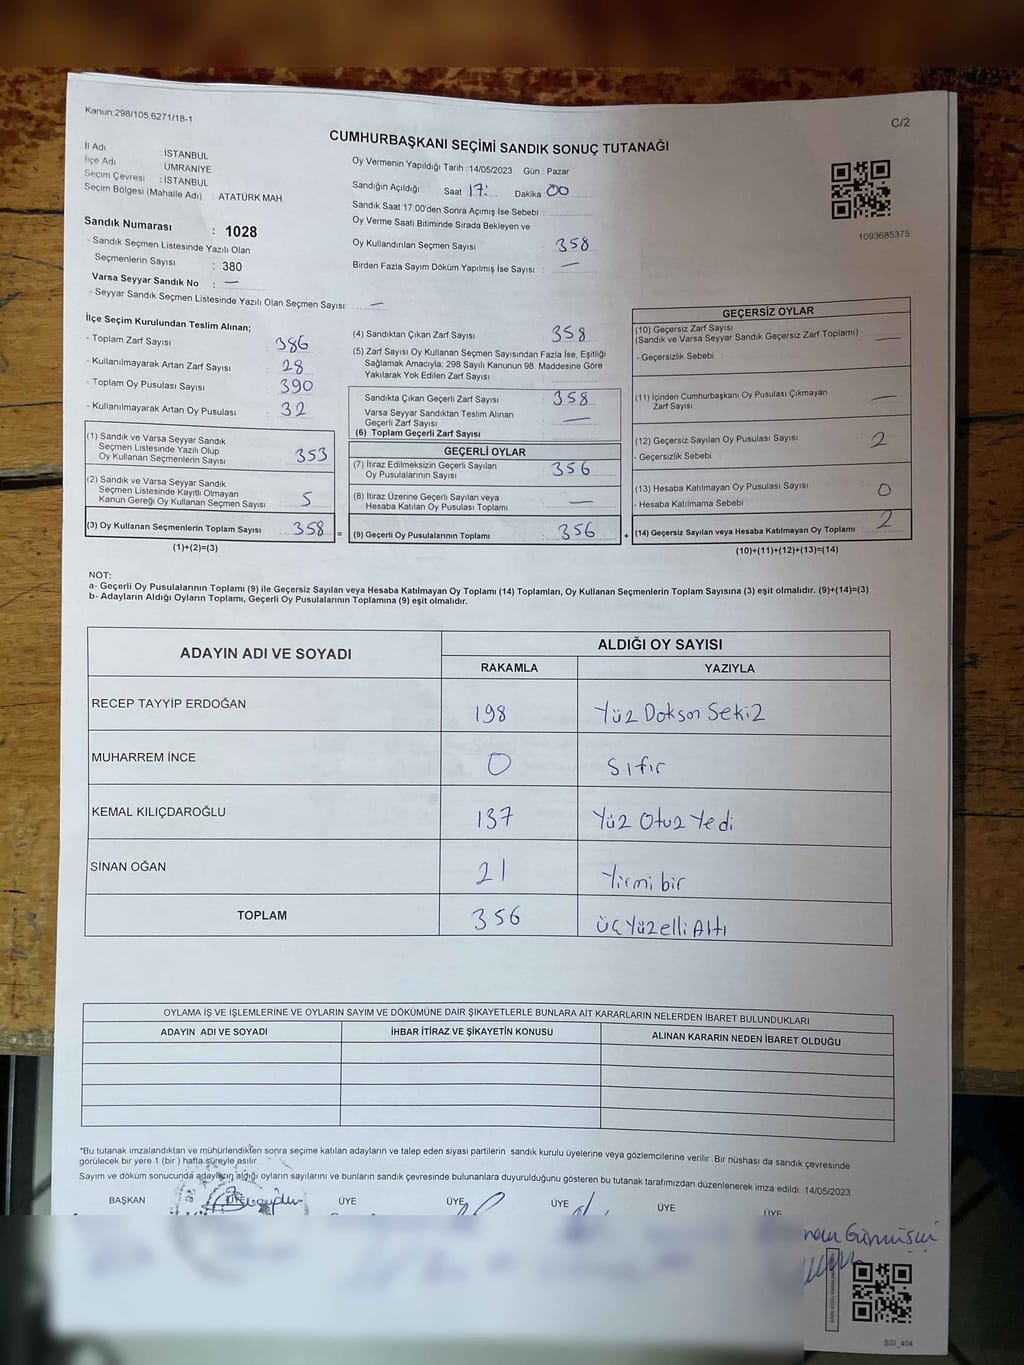 Kanun:298/105;6271/18-1
C/2
CUMHURBAŞKANI SEÇİMİ SANDIK SONUÇ TUTANAĞI
İl Adı : İSTANBUL
İlçe Adı ÜMRANİYE
Seçim Çevresi : İSTANBUL
Seçim Bölgesi (Mahalle Adı) : ATATÜRK MAH.
Sandık Numarası : 1028
- Sandık Seçmen Listesinde Yazılı Olan
Seçmenlerin Sayısı : 380
Varsa Seyyar Sandık No : —
- Seyyar Sandık Seçmen Listesinde Yazılı Olan Seçmen Sayısı: —
Oy Vermenin Yapıldığı Tarih :14/05/2023 Gün : Pazar
Sandığın Açıldığı Saat 17: Dakika 00
Sandık Saat 17.00'den Sonra Açımış İse Sebebi :
Oy Verme Saati Bitiminde Sırada Bekleyen ve
Oy Kullandırılan Seçmen Sayısı : 358
Birden Fazla Sayım Döküm Yapılmış İse Sayısı : —
1093685375
İlçe Seçim Kurulundan Teslim Alınan;
- Toplam Zarf Sayısı : 386
- Kullanılmayarak Artan Zarf Sayısı : 28
- Toplam Oy Pusulası Sayısı : 390
- Kullanılmayarak Artan Oy Pusulası : 32
(1) Sandık ve Varsa Seyyar Sandık
Seçmen Listesinde Yazılı Olup
Oy Kullanan Seçmenlerin Sayısı : 353
(2) Sandık ve Varsa Seyyar Sandık
Seçmen Listesinde Kayıtlı Olmayan
Kanun Gereği Oy Kullanan Seçmen Sayısı : 5
(3) Oy Kullanan Seçmenlerin Toplam Sayısı : 358 =
(1)+(2)=(3)
(4) Sandıktan Çıkan Zarf Sayısı : 358
(5) Zarf Sayısı Oy Kullanan Seçmen Sayısından Fazla İse, Eşitliği
Sağlamak Amacıyla; 298 Sayılı Kanunun 98. Maddesine Göre
Yakılarak Yok Edilen Zarf Sayısı :
Sandıkta Çıkan Geçerli Zarf Sayısı : 358
Varsa Seyyar Sandıktan Teslim Alınan
Geçerli Zarf Sayısı : —
(6) Toplam Geçerli Zarf Sayısı :
GEÇERLİ OYLAR
(7) İtiraz Edilmeksizin Geçerli Sayılan
Oy Pusulalarının Sayısı : 356
(8) İtiraz Üzerine Geçerli Sayılan veya
Hesaba Katılan Oy Pusulası Toplamı : —
(9) Geçerli Oy Pusulalarının Toplamı : 356 +
GEÇERSİZ OYLAR
(10) Geçersiz Zarf Sayısı
(Sandık ve Varsa Seyyar Sandık Geçersiz Zarf Toplamı) : —
- Geçersizlik Sebebi :
(11) İçinden Cumhurbaşkanı Oy Pusulası Çıkmayan
Zarf Sayısı : —
(12) Geçersiz Sayılan Oy Pusulası Sayısı : 2
- Geçersizlik Sebebi
(13) Hesaba Katılmayan Oy Pusulası Sayısı : 0
- Hesaba Katılmama Sebebi :
(14) Geçersiz Sayılan veya Hesaba Katılmayan Oy Toplamı : 2
(10)+(11)+(12)+(13)=(14)
NOT:
a- Geçerli Oy Pusulalarının Toplamı (9) ile Geçersiz Sayılan veya Hesaba Katılmayan Oy Toplamı (14) Toplamları, Oy Kullanan Seçmenlerin Toplam Sayısına (3) eşit olmalıdır. (9)+(14)=(3)
b- Adayların Aldığı Oyların Toplamı, Geçerli Oy Pusulalarının Toplamına (9) eşit olmalıdır.
ADAYIN ADI VE SOYADI ALDIĞI OY SAYISI
RAKAMLA YAZIYLA
RECEP TAYYİP ERDOĞAN 198 Yüz Doksan Sekiz
MUHARREM İNCE 0 Sıfır
KEMAL KILIÇDAROĞLU 137 Yüz Otuz Yedi
SİNAN OĞAN 21 Yirmi bir
TOPLAM 356 Üç Yüz elli Altı
OYLAMA İŞ VE İŞLEMLERİNE VE OYLARIN SAYIM VE DÖKÜMÜNE DAİR ŞİKAYETLERLE BUNLARA AİT KARARLARIN NELERDEN İBARET BULUNDUKLARI
ADAYIN ADI VE SOYADI İHBAR İTİRAZ VE ŞİKAYETİN KONUSU ALINAN KARARIN NEDEN İBARET OLDUĞU
*Bu tutanak imzalandıktan ve mühürlendikten sonra seçime katılan adayların ve talep eden siyasi partilerin sandık kurulu üyelerine veya gözlemcilerine verilir. Bir nüshası da sandık çevresinde
görülecek bir yere 1 (bir) hafta süreyle asılır.
Sayım ve döküm sonucunda adayların aldığı oyların sayılarını ve bunların sandık çevresinde bulunanlara duyurulduğunu gösteren bu tutanak tarafımızdan düzenlenerek imza edildi. 14/05/2023
BAŞKAN ÜYE ÜYE ÜYE ÜYE ÜYE ÜYE
SSI_404